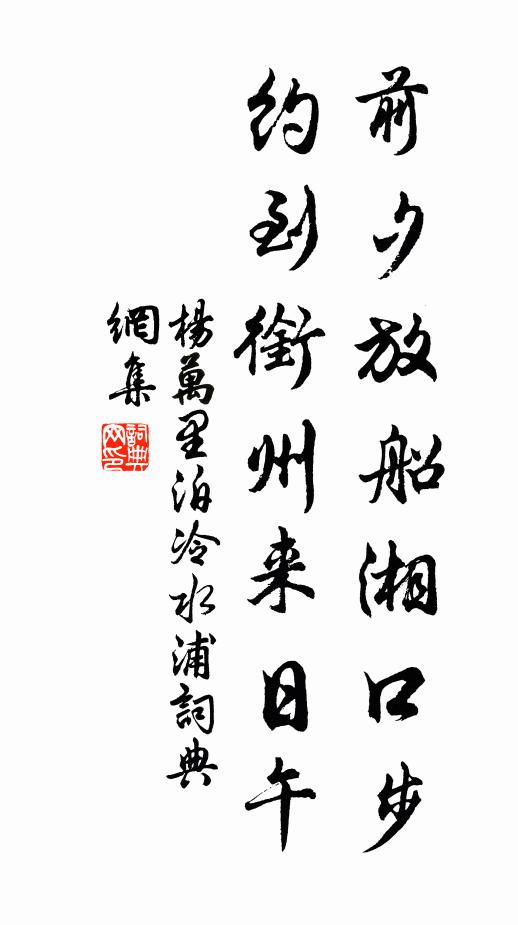 前夕放船湘口步
約到衡州来日午
楊萬里泊冷水浦詞典
網集
詞典
网印